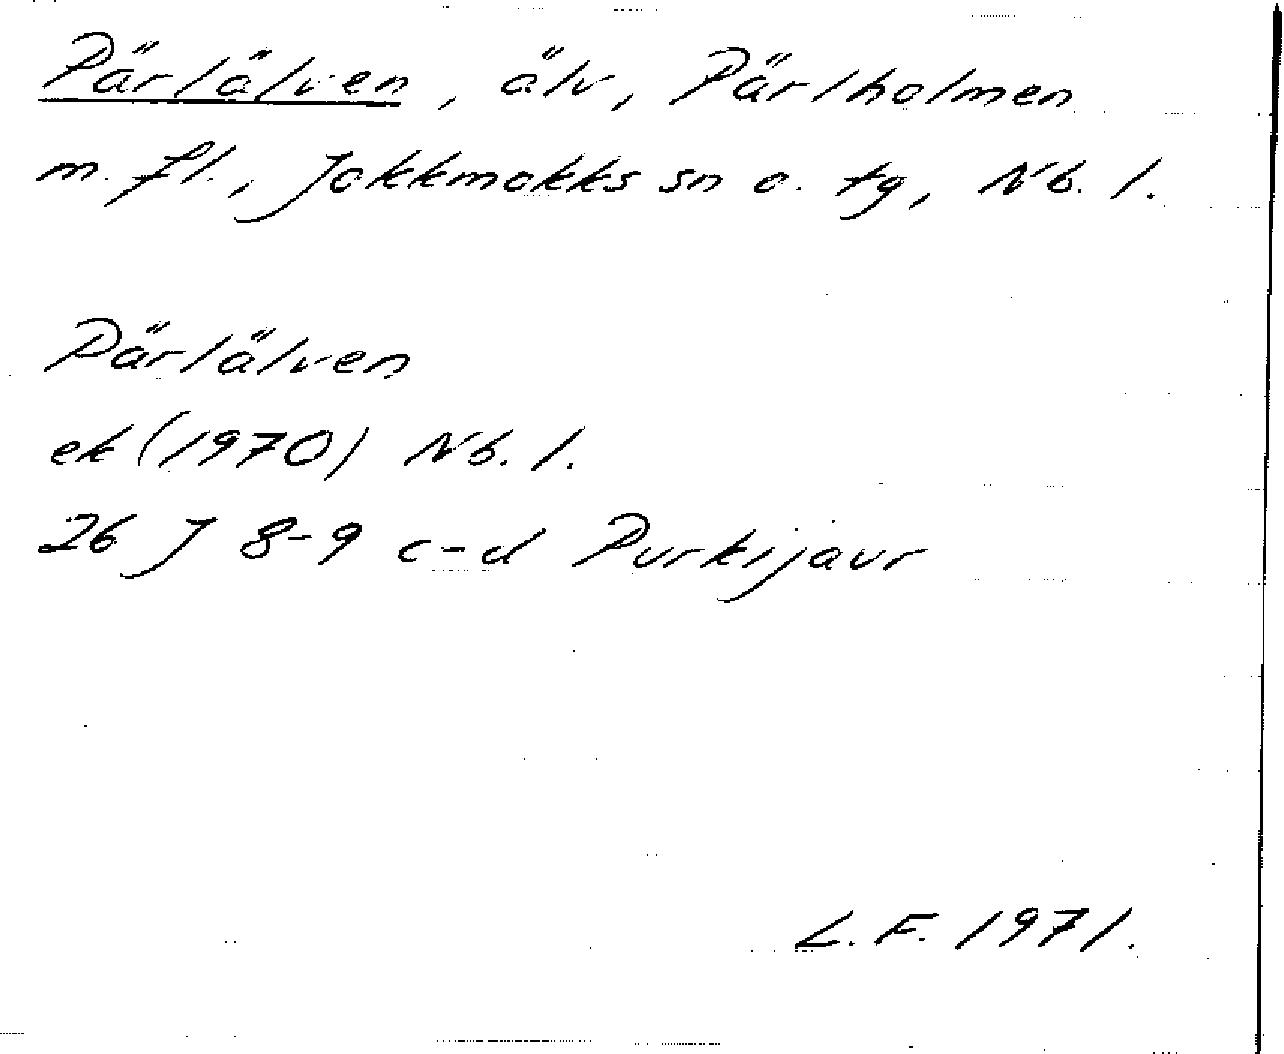 Pärlälven, älv, Pärlholmen
m. fl., Jokkmokks sn o. tg, Nb. l.
Pärlälven
ek (1970) Nb. l.
26 J 8-9 c-d Purkijaur
L. F. 1971.